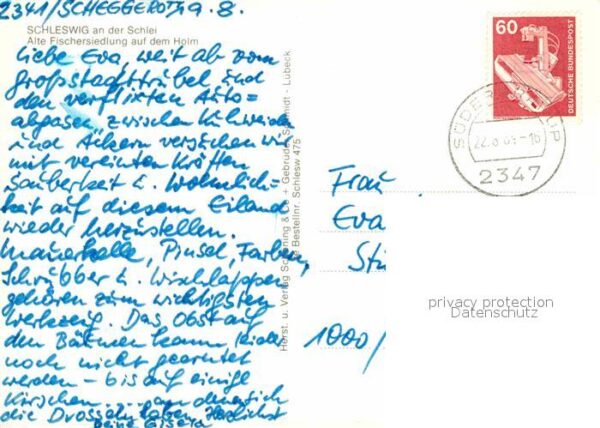 2341/SCHEGGEROTT 9.8.
SCHLESWIG an der Schlei
Alte Fischersiedlung auf dem Holm
Liebe Eva, weit ab vom
Großstadttrubel und
den verflixten Auto=
abgasen zwischen Kuhweiden
und Äckern versuchen wir
mit vereinten Kräften
Sauberkeit u. Wohnlich-
keit auf diesem Eiland
wieder herzustellen.
Mauerkelle, Pinsel, Farben,
Schrubber u. Wischlappen
gehören zum wichtigsten
Werkzeug. Das Obst auf
den Bäumen kann leider
noch nicht geerntet
werden - bis auf einige
Kirschen ... an denen sich
die Drosseln laben. Herzlichst
Deine Gisela
Horst u. Verlag Schöning & Co + Gebrüder Schmidt - Lübeck
Bestellnr. Schlesw 475
60
DEUTSCHE BUNDESPOST
SÜDERBRARUP
-16
2347
Frau
Eva
1000/
privacy protection
Datenschutz